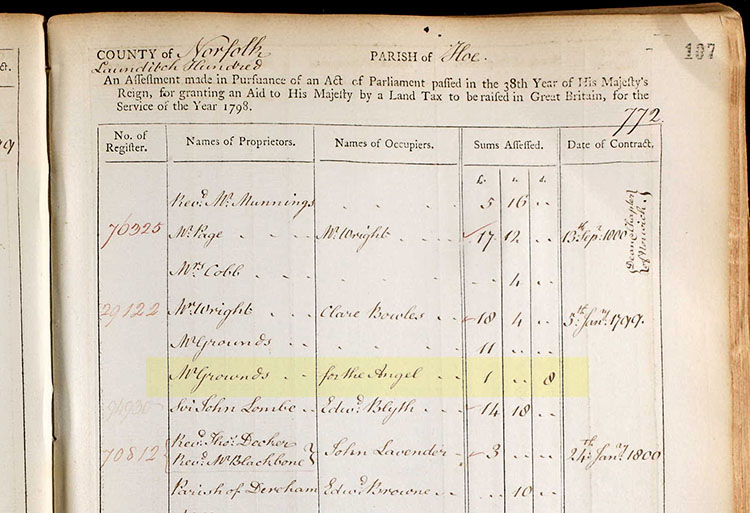 107
COUNTY of Norfolk PARISH of Hoe.
Launditch Hundred
An Assessment made in Pursuance of an Act of Parliament passed in the 38th Year of His Majesty's
Reign, for granting an Aid to His Majesty by a Land Tax to be raised in Great Britain, for the
Service of the Year 1798.
772
No. of Register. Names of Proprietors. Names of Occupiers. Sums Assessed. Date of Contract.
£. s. d.
Revd. Mr. Munnings . . . . 5 16 ..
76325 Mr. Page . . . Mr. Wright . . . 17 12 .. 13th Sepr. 1800 Dean & Chapter of Norwich
Mrs Cobb . . . . . . 4 ..
29122 Mr. Wright . . Clare Bowles . . 18 4 .. 5th Jany. 1799.
Mr Grounds . . . . . 11 .. ..
Mr Grownds . . for the Angel . . 1 .. 8
94930 Sir John Lombe . . Edwd. Blyth . . 14 18 ..
70812 { Revd. Thos. Decker
Revd. Mr Blackbone } John Lavender . . 3 .. .. 24th Jany. 1800
Parish of Dereham Edwd Browne . . .. 10 ..